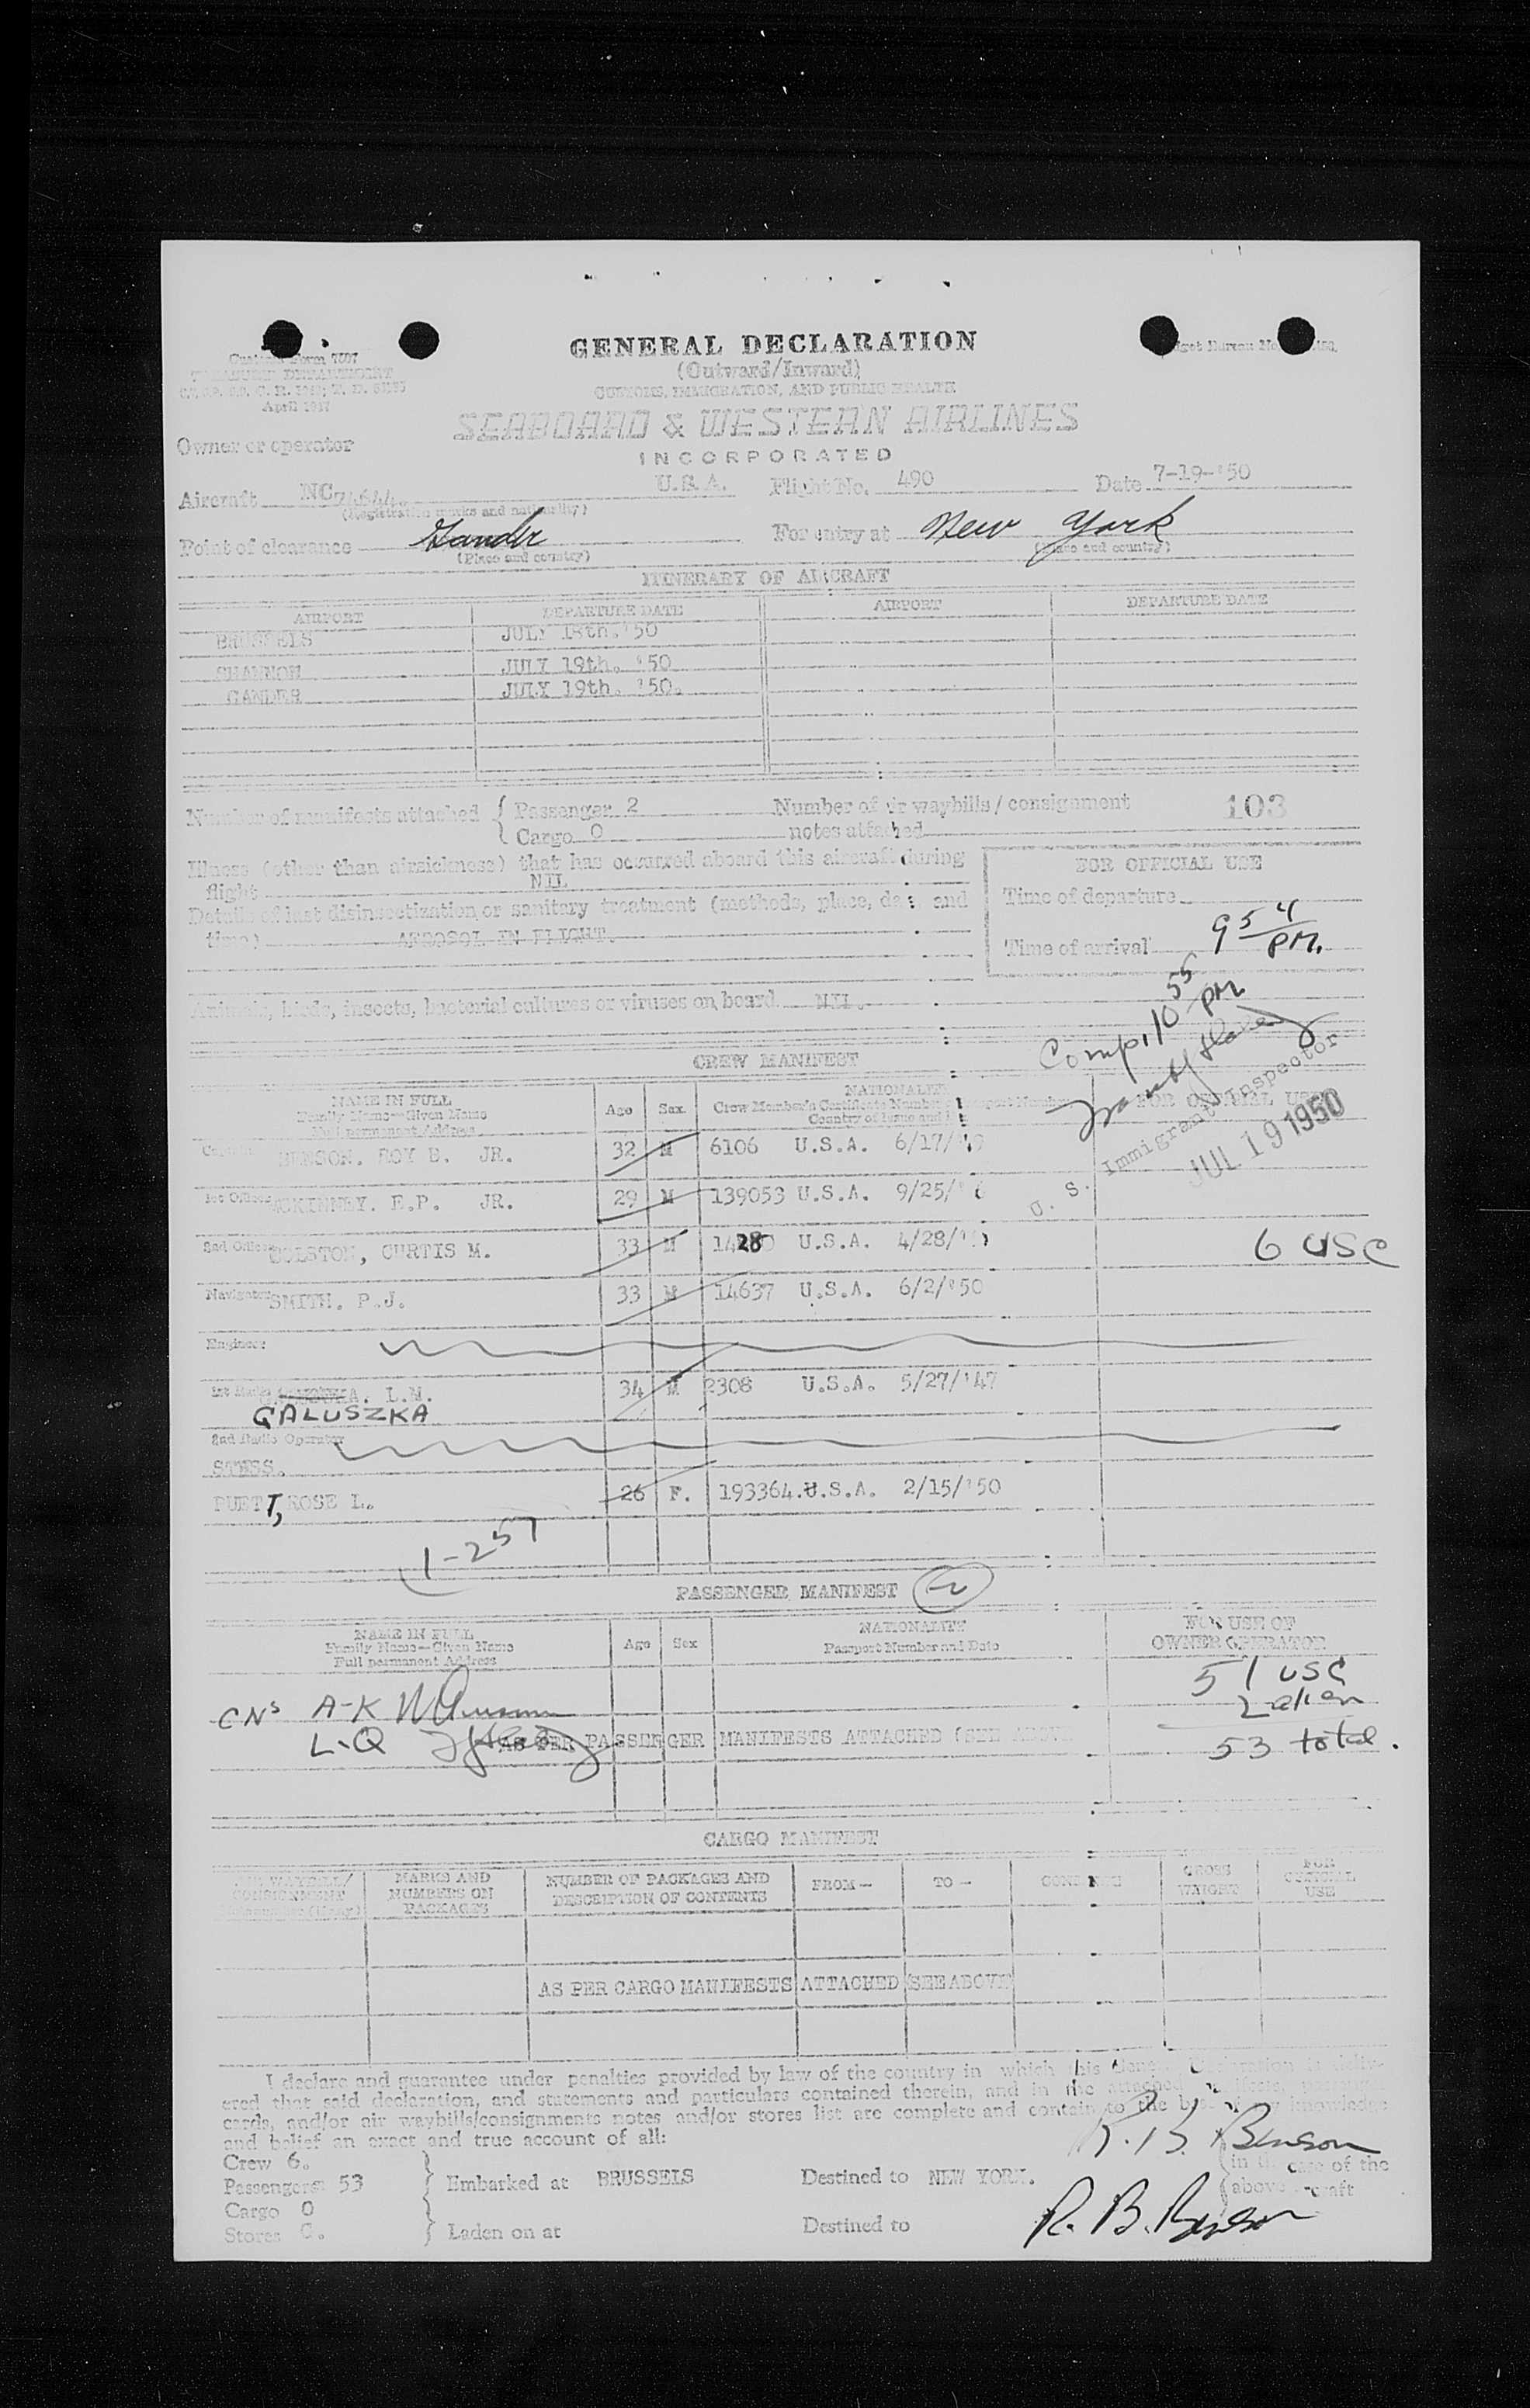 Customs Form 7507
TREASURY DEPARTMENT
April 1947
GENERAL DECLARATION
(Outward/Inward)
CUSTOMS, IMMIGRATION, AND PUBLIC HEALTH
SEABOARD & WESTERN AIRLINES
INCORPORATED
Owner or operator
Aircraft NC74644. U.S.A. Flight No. 490 Date 7-19-'50
(Registration marks and nationality)
Point of clearance Gander For entry at New York
(Place and country) (Place and country)
ITINERARY OF AIRCRAFT
AIRPORT DEPARTURE DATE AIRPORT DEPARTURE DATE
BRUSSELS JULY 18th. '50
SHANNON JULY 19th. '50
GANDER JULY 19th. '50.
Number of manifests attached { Passenger 2 Number of air waybills/consignment 103
Cargo 0 notes attached
Illness (other than airsickness) that has occurred aboard this aircraft during
flight NIL
FOR OFFICIAL USE
Details of last disinsectization or sanitary treatment (methods, place, date and
time) AEROSOL IN FLIGHT.
Time of departure
Time of arrival 9 54 PM.
Animals, birds, insects, bacterial cultures or viruses on board NIL.
Comp. 10 55 PM
U. S. Immigrant Inspector
JUL 19 1950
CREW MANIFEST
NAME IN FULL
Family Name—Given Name
Full permanent Address
Age Sex NATIONALITY
FOR OFFICIAL USE
BENSON. ROY B. JR. 32 M 6106 U.S.A. 6/17/
1st Officer McKINNEY. E.P. JR. 29 M 139053 U.S.A. 9/25/
2nd Officer COLSTON, CURTIS M. 33 M U.S.A. 4/28/
6 USC
Navigator SMITH. P.J. 33 M 14637 U.S.A. 6/2/'50
Engineer
1st Radio L.M. 34 M 2308 U.S.A. 5/27/'47
GALUSZKA
2nd Radio Operator
STESS.
PUETT, ROSE L. 26 F. 193364.U.S.A. 2/15/'50
1-257
PASSENGER MANIFEST 2
NAME IN FULL
Family Name—Given Name
Full permanent Address
Age Sex NATIONALITY
Passport Number and Date
FOR USE OF
OWNER OPERATOR
51 USC
CNs A-K
2 alien
L-Q
AS PER PASSENGER MANIFESTS ATTACHED (SEE ABOVE
53 total.
CARGO MANIFEST
AIR WAYBILL/
CONSIGNMENT
MARKS AND
NUMBERS ON
PACKAGES
NUMBER OF PACKAGES AND
DESCRIPTION OF CONTENTS
FROM— TO—
GROSS
WEIGHT
FOR
OFFICIAL
USE
AS PER CARGO MANIFESTS ATTACHED (SEE ABOVE
I declare and guarantee under penalties provided by law of the country in which this General Declaration is deliv-
ered that said declaration, and statements and particulars contained therein, and in the attached manifests
cards, and/or air waybills/consignments notes and/or stores list are complete and contain to the best of my knowledge
and belief an exact and true account of all:
R. B. Benson
Crew 6.
Passengers 53 Embarked at BRUSSELS Destined to NEW YORK. in the case of the
above aircraft
Cargo 0
Stores 0. Laden on at Destined to R. B. Benson